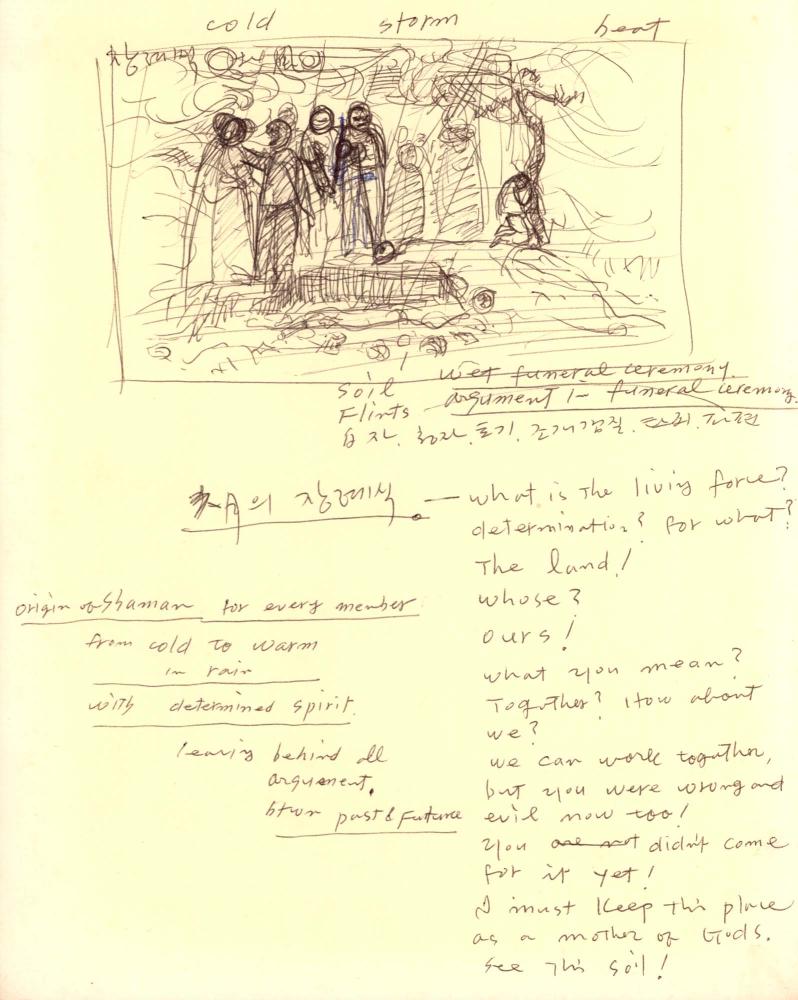 cold storm heat
장례식
Soil wet funeral ceremony.
Flints argument in funeral ceremony.
백자, 청자, 토기, 조개껍질, 파편
의 장례식. — what is The living force?
determination? For what?
The land!
whose?
ours!
what you mean?
Together? How about
we?
we can work together,
but you were wrong and
evil now too!
you are not didn't come
for it yet!
I must Keep this place
as a mother of Gods.
see This soil!
origin of Shaman for every member
from cold to warm
in rain
with determined spirit.
leaving behind all
argument.
btwn past & Future